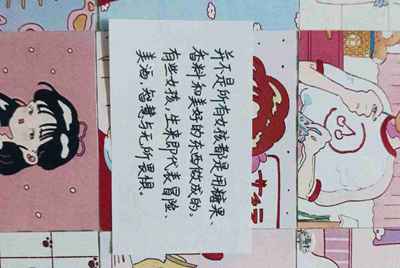 并不是所有女孩都是用糖果、
香料和美好的东西做成的。
有些女孩，生来即代表冒险、
美酒、智慧与无所畏惧。